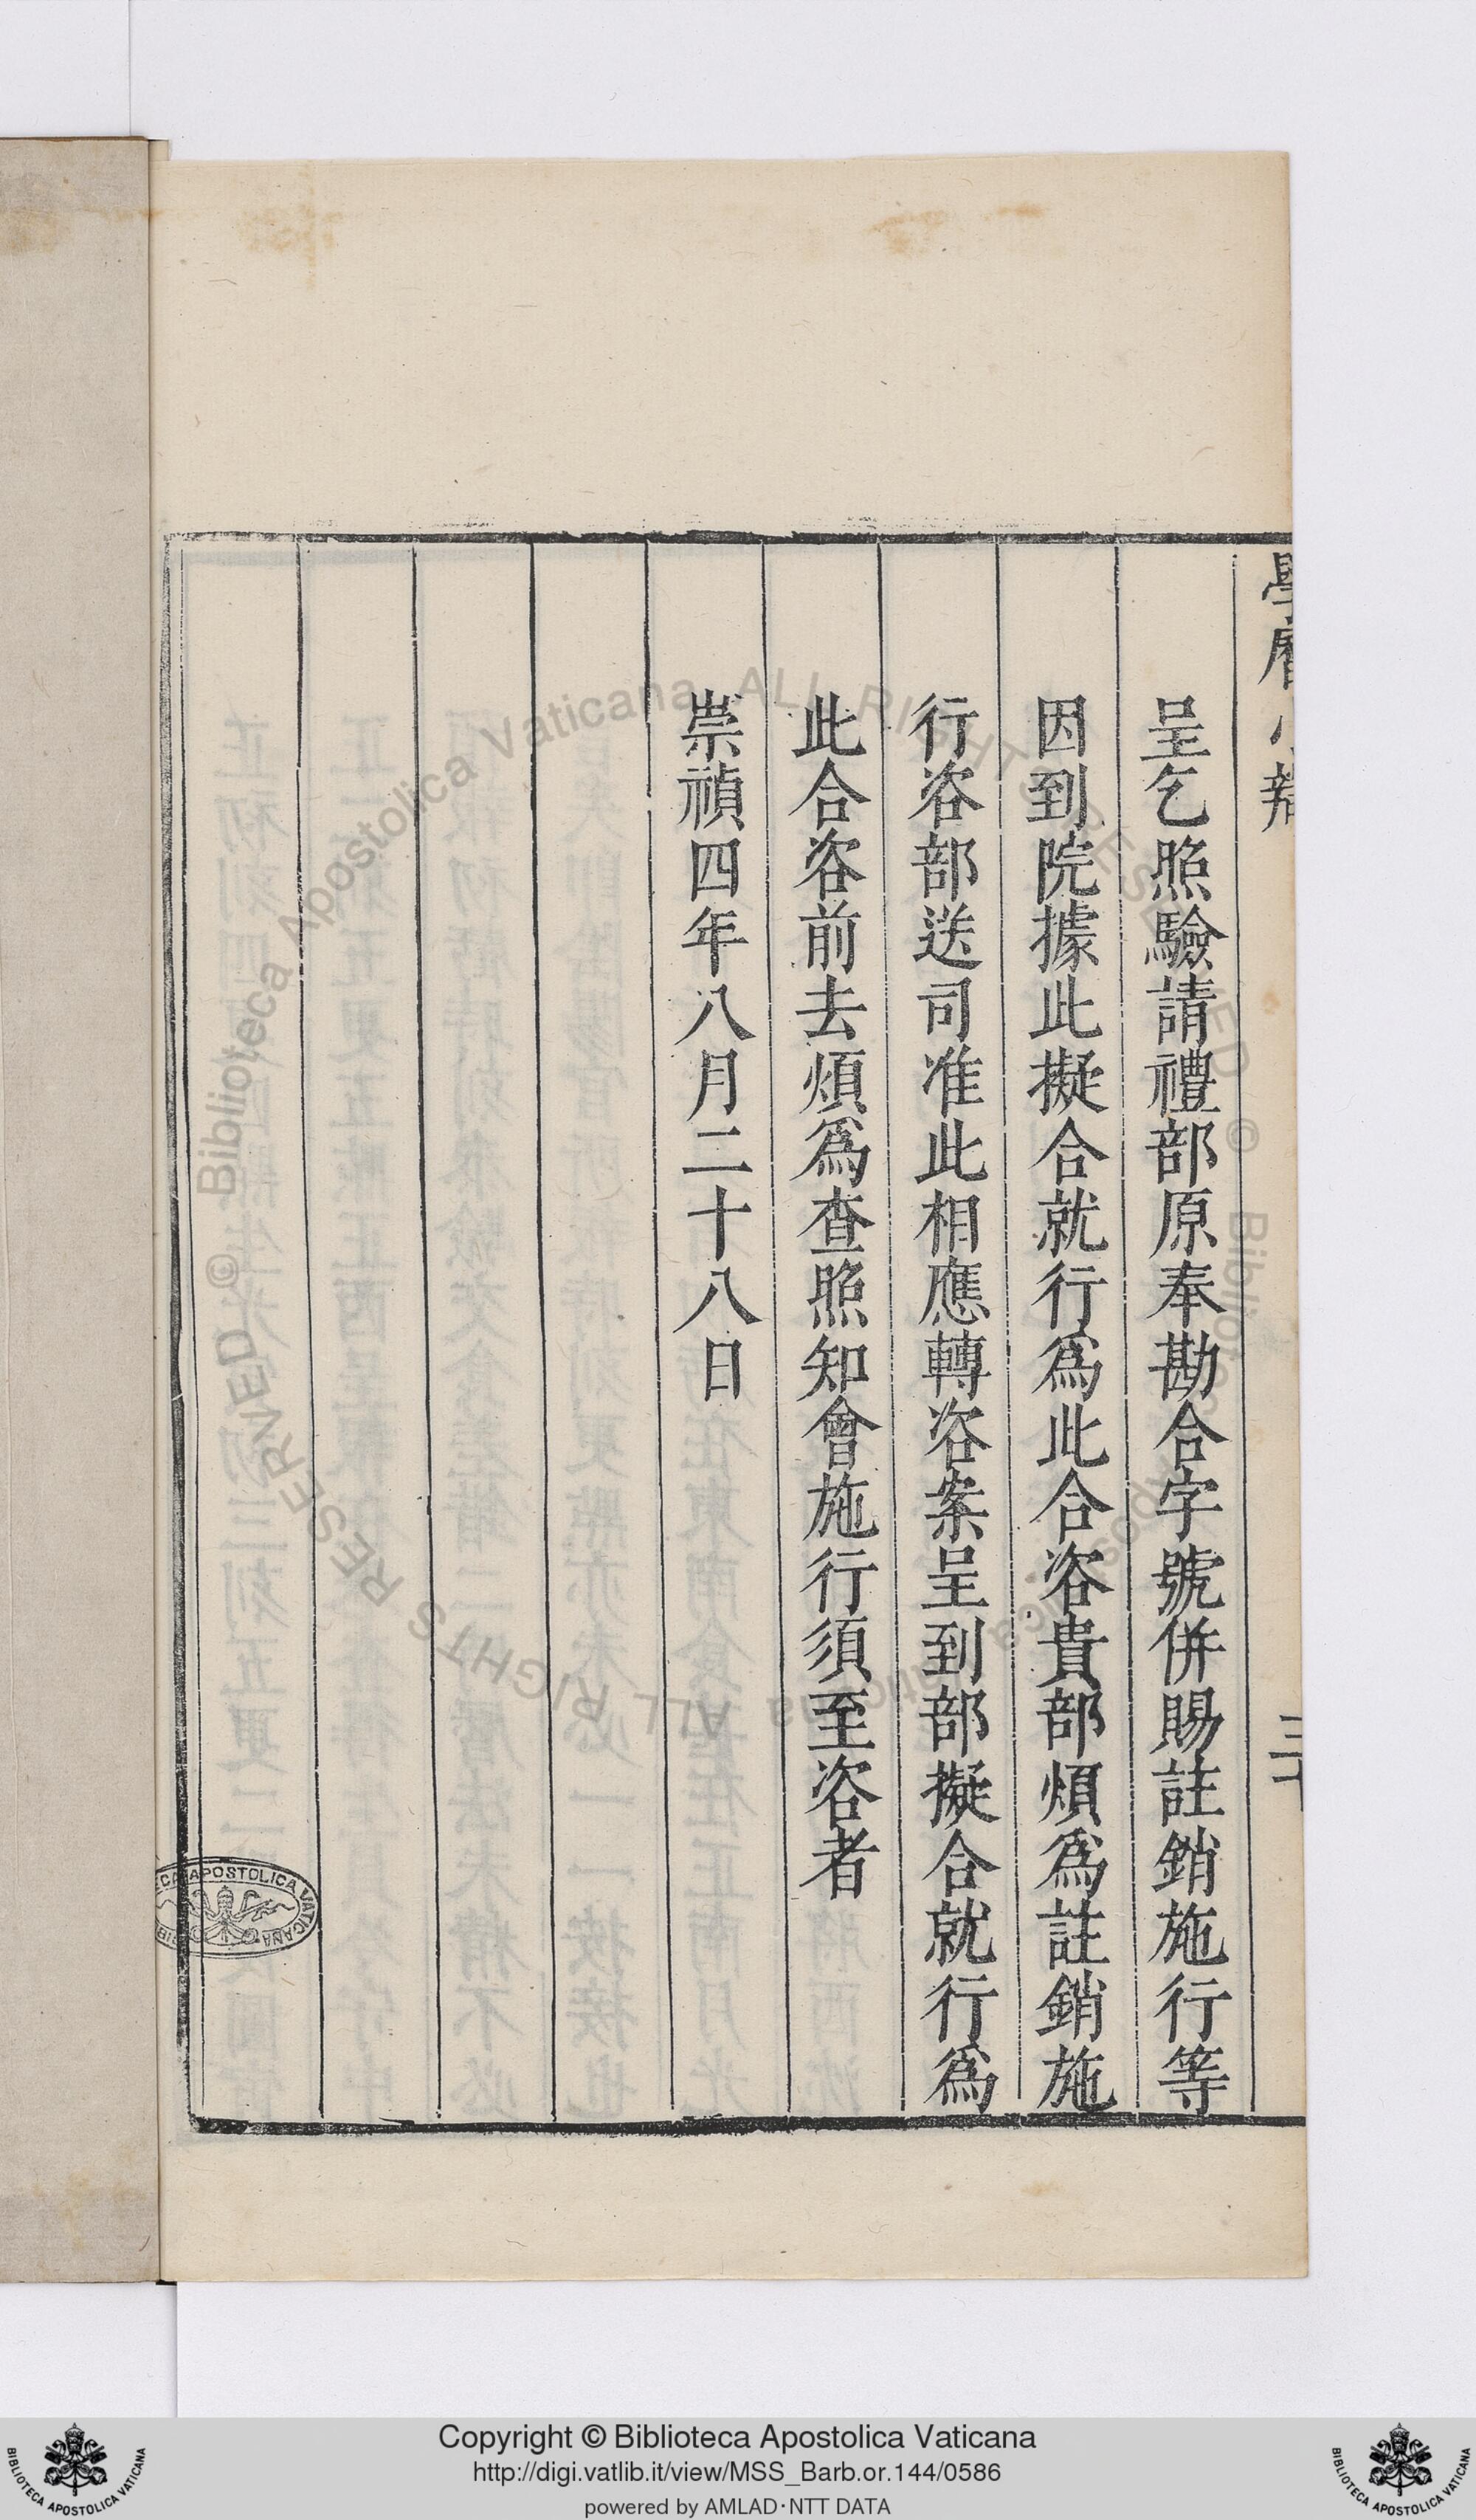 學曆小辯
三十
呈乞照驗請禮部原奉勘合字號併賜註銷施行等
因到院據此擬合就行爲此合咨貴部煩爲註銷施
行咨部送司准此相應轉咨案呈到部擬合就行爲
此合咨前去煩爲查照知會施行須至咨者
崇禎四年八月二十八日
© Biblioteca Apostolica Vaticana ALL RIGHTS RESERVED © Biblioteca Apostolica Vaticana ALL RIGHTS RESERVED
BIBLIOTECA APOSTOLICA VATICANA
Copyright © Biblioteca Apostolica Vaticana
http://digi.vatlib.it/view/MSS_Barb.or.144/0586
powered by AMLAD·NTT DATA
BIBLIOTECA APOSTOLICA VATICANA
BIBLIOTECA APOSTOLICA VATICANA